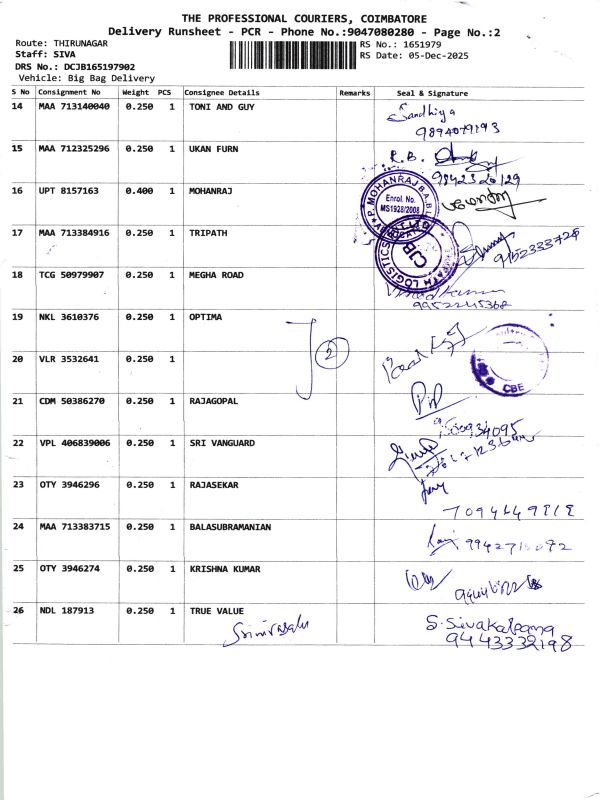 THE PROFESSIONAL COURIERS, COIMBATORE
Delivery Runsheet - PCR - Phone No.:9047080280 - Page No.:2
Route: THIRUNAGAR
RS No.: 1651979
Staff: SIVA
RS Date: 05-Dec-2025
DRS No.: DCJB165197902
Vehicle: Big Bag Delivery
S No Consignment No Weight PCS Consignee Details Remarks Seal & Signature
14 MAA 713140040 0.250 1 TONI AND GUY Sandhiya
9894079193
15 MAA 712325296 0.250 1 UKAN FURN R.B.
9842326129
16 UPT 8157163 0.400 1 MOHANRAJ
P. MOHANRAJ B.A.B.L
Enrol. No.
MS1928/2008
ADVOCATE
17 MAA 713384916 0.250 1 TRIPATH
9152333726
LOGISTICS
CJB
18 TCG 50979907 0.250 1 MEGHA ROAD
9952245368
19 NKL 3610376 0.250 1 OPTIMA
2
20 VLR 3532641 0.250 1
CBE
21 CDM 50386270 0.250 1 RAJAGOPAL
22 VPL 406839006 0.250 1 SRI VANGUARD
23 OTY 3946296 0.250 1 RAJASEKAR
24 MAA 713383715 0.250 1 BALASUBRAMANIAN
25 OTY 3946274 0.250 1 KRISHNA KUMAR
26 NDL 187913 0.250 1 TRUE VALUE
Srinivasalu
S. Sivakalpana
9443332198